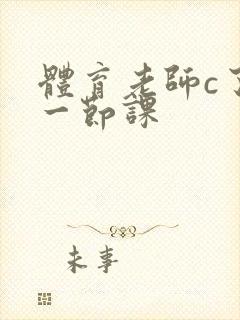 體育老師c了
一節課
未事